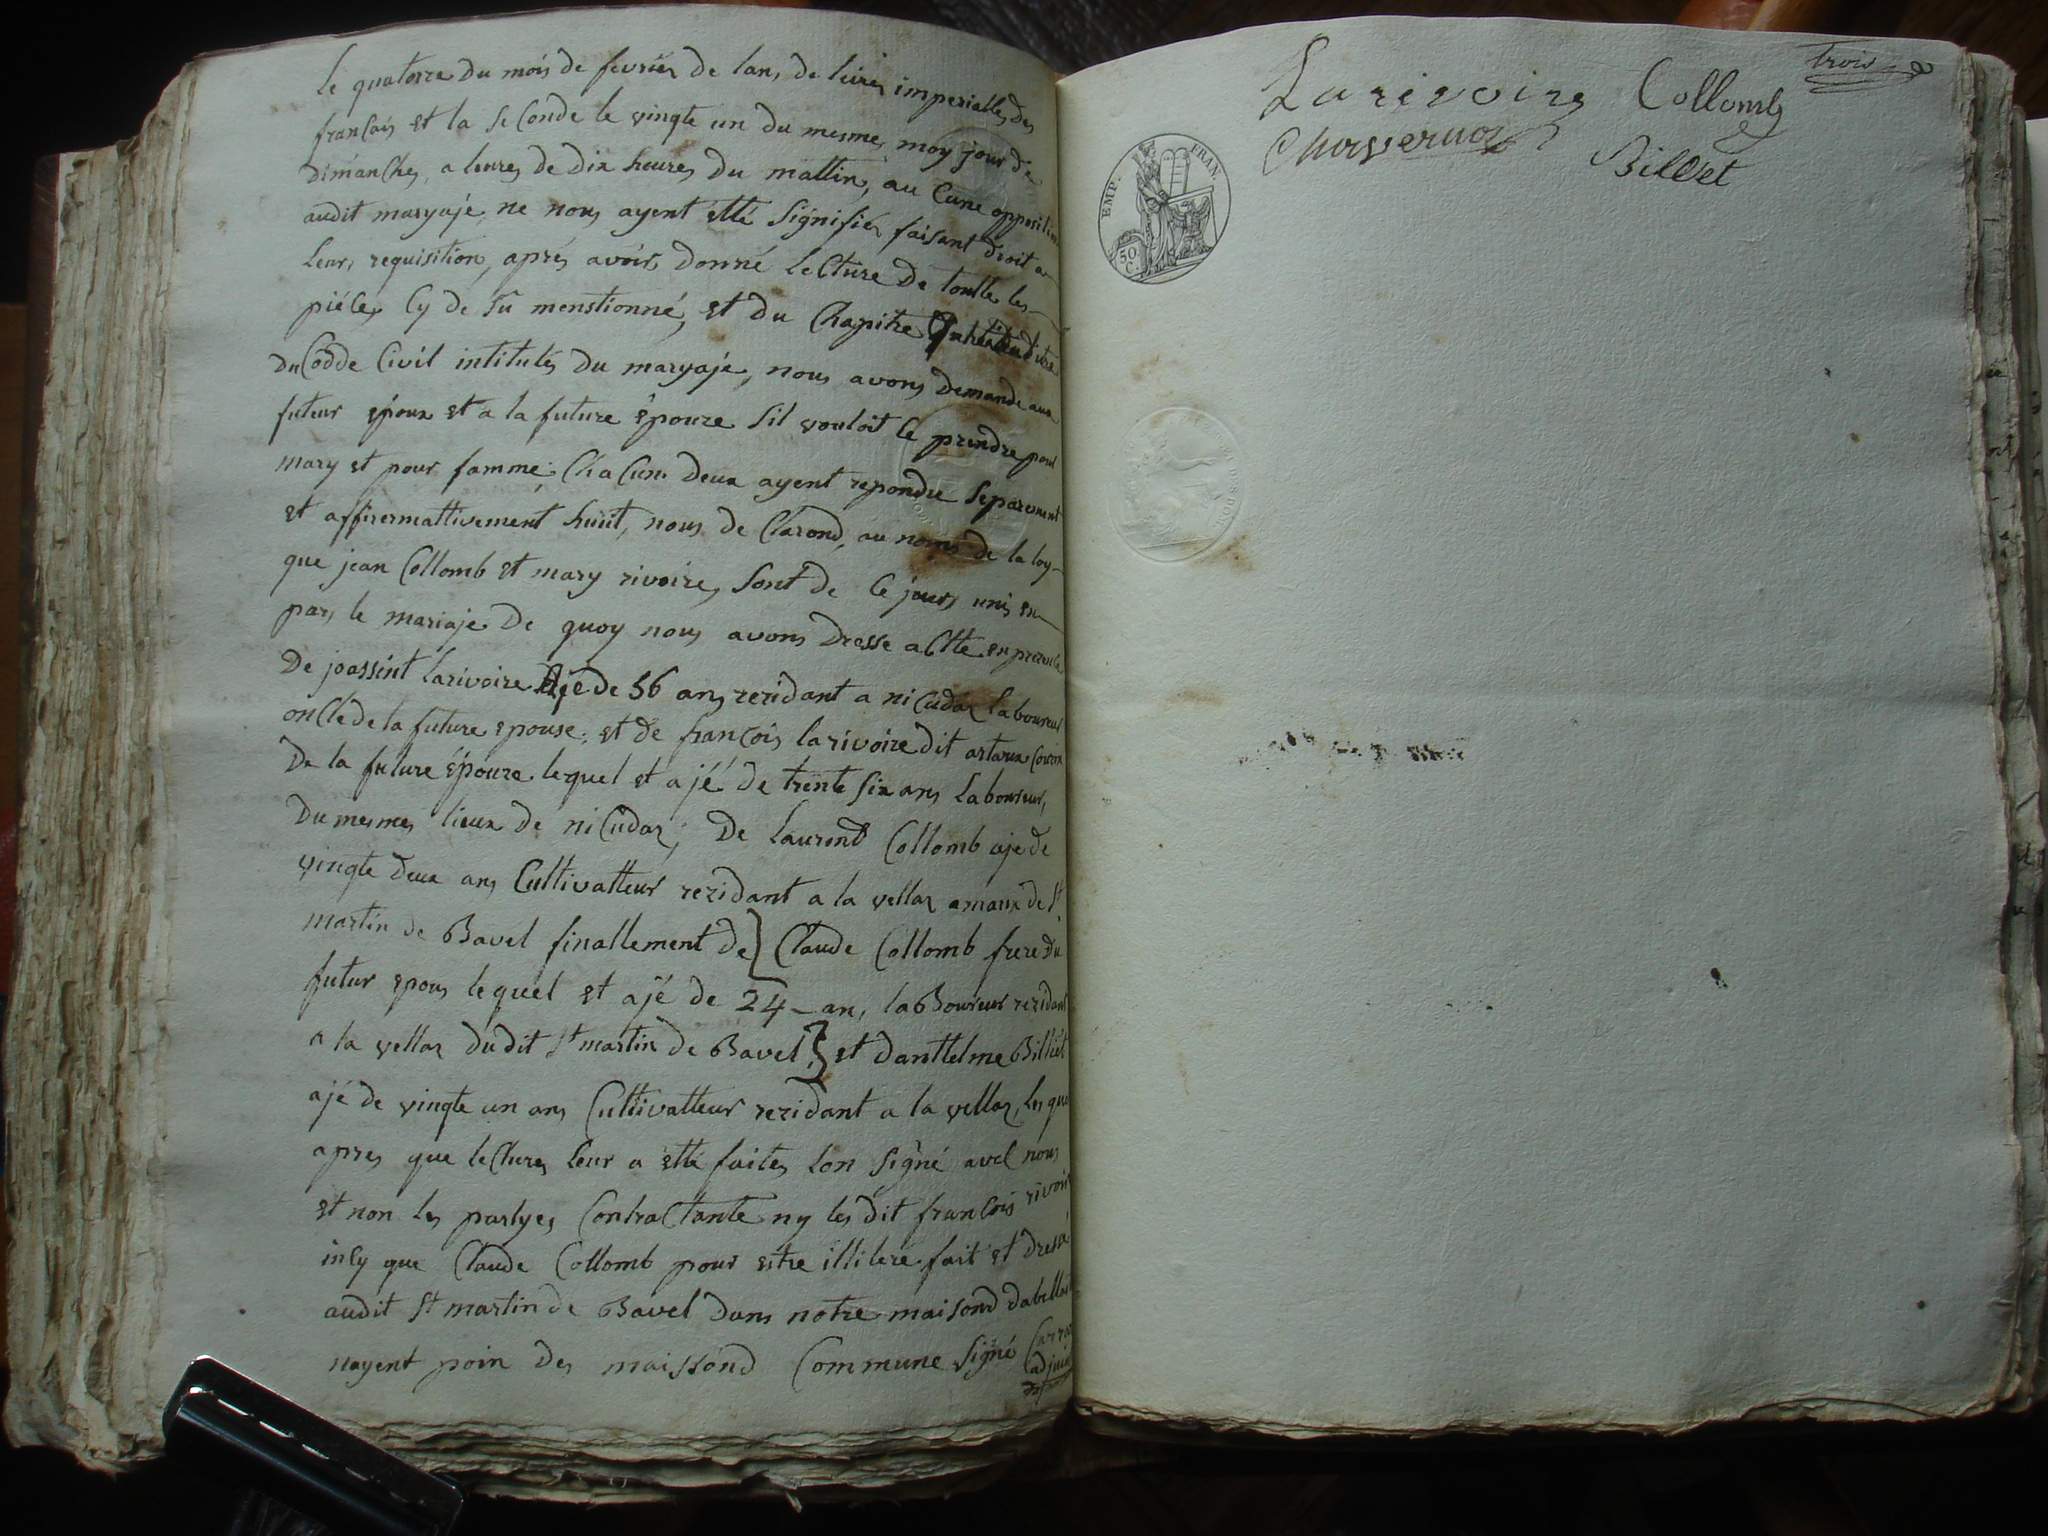 le quatorze du mois de fevrier de lan, de leire imperialle des
francais et la seconde le vingte un du mesme moy jour de
dimanche, a leure de dix heures du mattin, au cune opposition
audit maryaje ne nous ayent etté signifiés faisant droit a
leurs requisition, aprés avoirs donné lecture de toutte les
piéces cy de su menstionné, et du Chapitre
du Codde Civil intitulés du maryaje, nous avons demande aux
futeur époux et a la future épouze sil vouloit ce prendre pour
mary et pour famme, Chacun deux ayent repondu separement
et affirermattivement huit, nous de Clarond, au noms de la loy
que jean Collomb et mary rivoire, sont de ce jours unis en
pars le mariaje de quoy nous avons dresse actte en prezence
de joassint larivoire Ajé de 56 ans rezidant a nicudaz laboureur
oncle de la future epouse, et de francois larivoire dit artaux Couzin
de la future épouze lequel et ajé de trente six ans laboureur,
du mesmes lieux de nicudaz; de laurend Collomb aje de
vingte deux ans Cultivatteur rezidant a la vellaz amaux de St
martin de Bavel finallement de} Claude Collomb frere du
futur epous lequel et ajé de 24 - an, laboureur rezidant
a la vellaz dudit St martin de Bavel } et danttelme Billiet
ajé de vingte un ans Cultivatteur rezidant a la vellaz, les que
apres que lectures leur a etté faites lon signé avec nous
et non les partyes Contractante ny les dit francois rivoire
incy que Claude Collomb pour estre illitere, fait et dressé
audit St martin de Bavel dans notre maisond dabella
nayent poin des maissond Commune signé Carraz
adjoint
trois
Larivoire Collomb
Billiet
EMP. FRAN.
50
C.